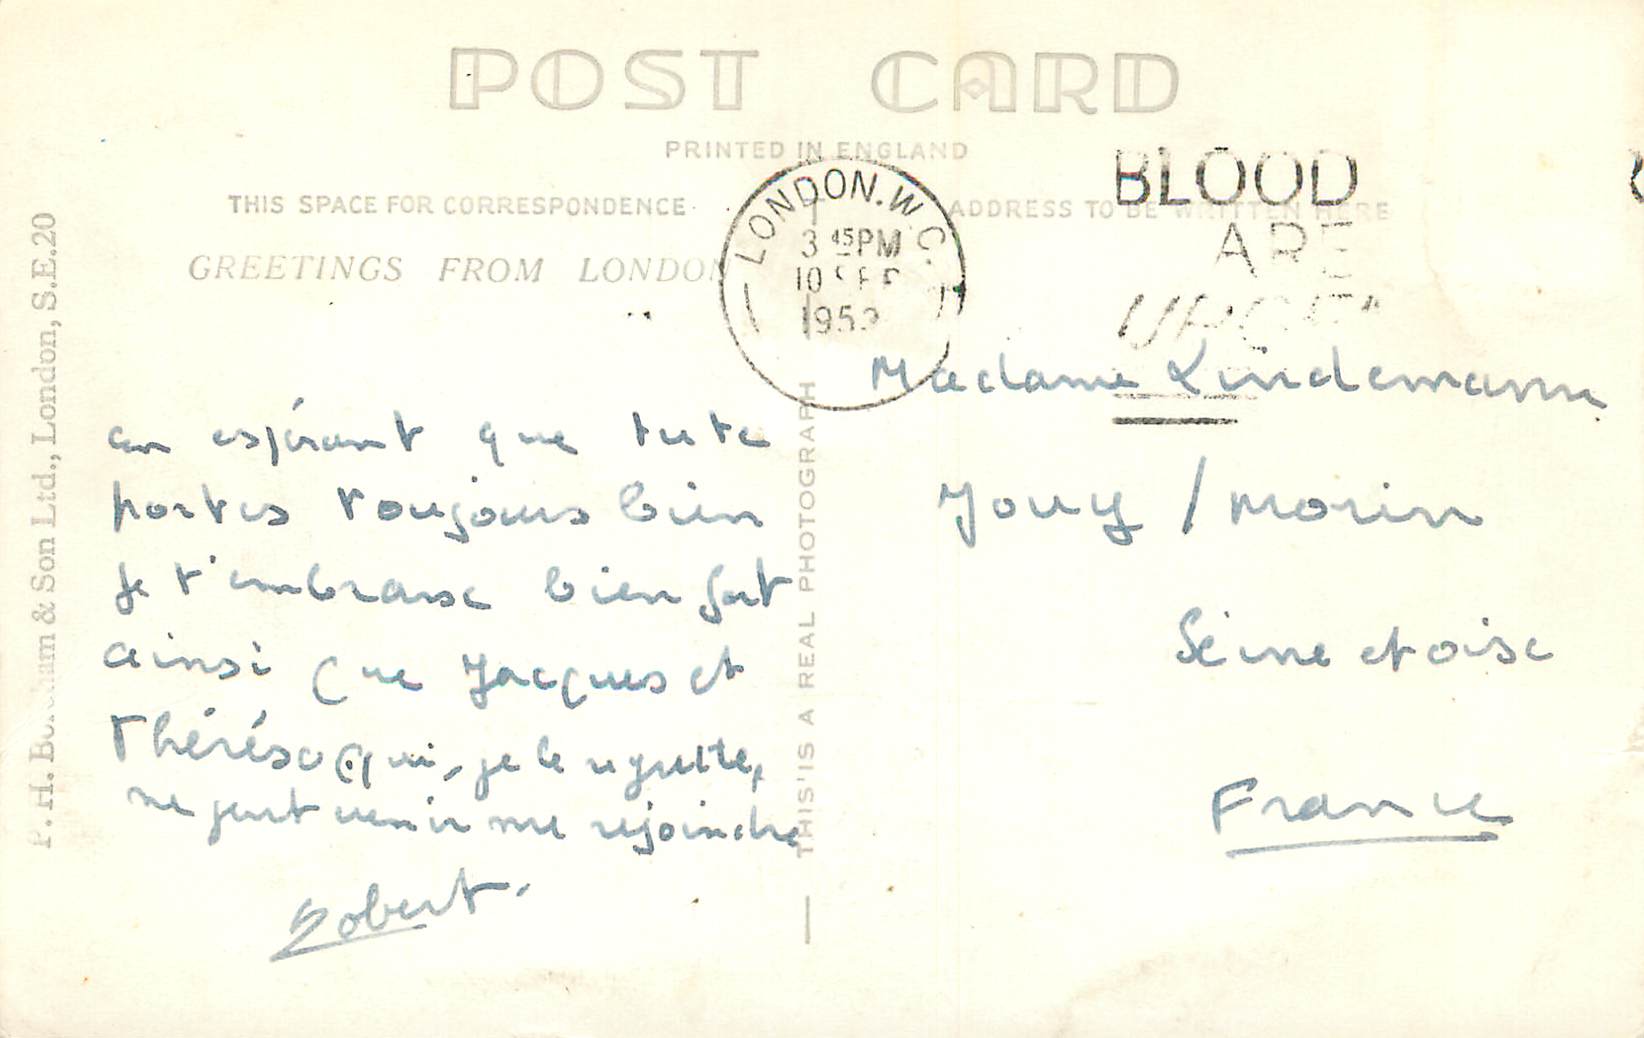 POST CARD
PRINTED IN ENGLAND
THIS SPACE FOR CORRESPONDENCE
ADDRESS TO BE WRITTEN HERE
GREETINGS FROM LONDON
LONDON. W.C.
3 45 PM
10 SEP
195
BLOOD
ARE
URGE
en espérant que tu te
portes toujours bien
je t'embrasse bien fort
ainsi que Jacques et
Thérése qui, je le regrette,
ne peut venir me rejoindre
Robert.
Madame Lindemann
Jouy / Morin
Seine et oise
France
P. H. Boreham & Son Ltd., London, S.E.20
THIS IS A REAL PHOTOGRAPH